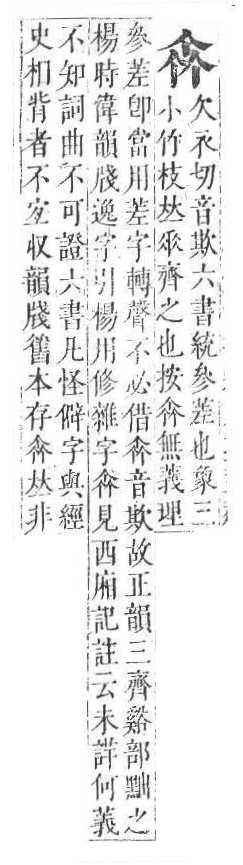 欠衣切音欺六書統參差也象三
小竹枝𠀤齊之也按無義理
參差卽當用差字轉聲不必借音欺故正韻三齊谿部黜之
楊時偉韻牋逸字引楊用修雜字見西廂記註云未詳何義
不知詞曲不可證六書凡怪僻字與經
史相背者不宐収韻牋舊本存𠀤非